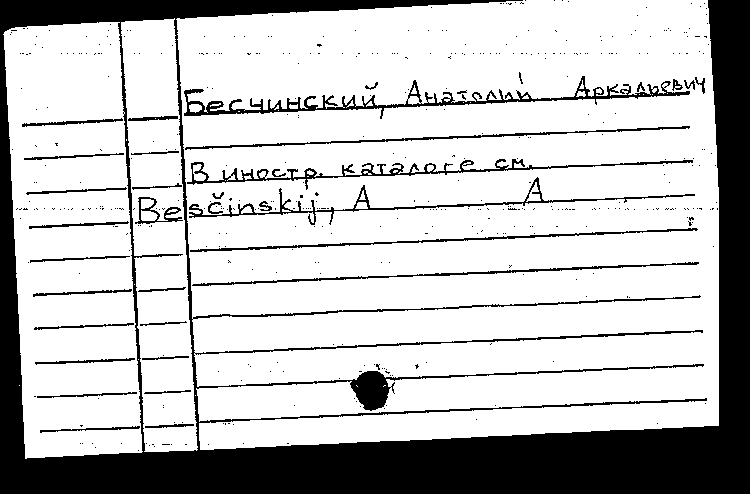 Бесчинский, Анатолий Аркадьевич
В иностр. каталоге см.
Besčinskij, A A